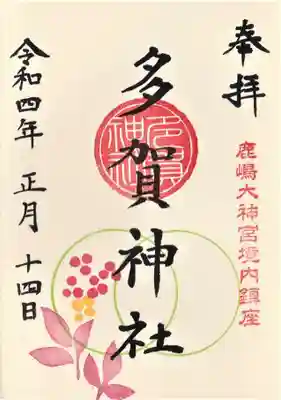 奉拝
鹿嶋大神宮境内鎮座
多賀神社
令和四年 正月 十四日